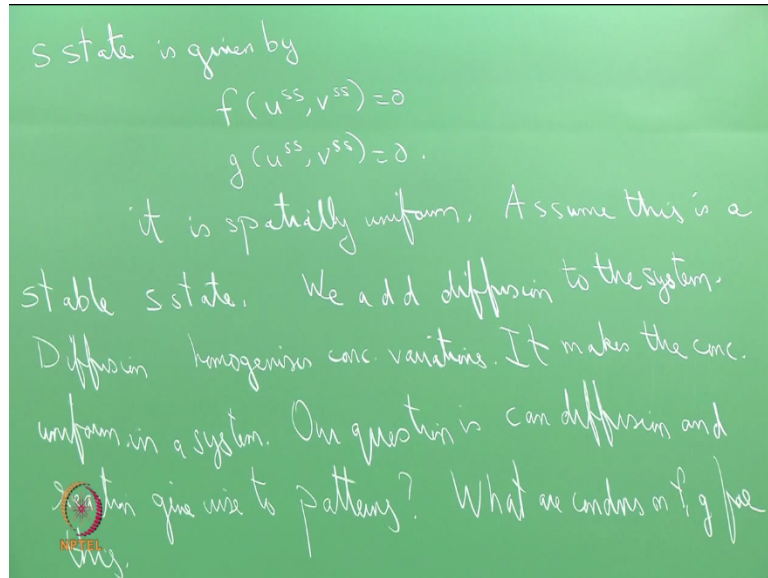 s state is given by
f(u^ss, v^ss) = 0
g(u^ss, v^ss) = 0.
it is spatially uniform. Assume this is a
stable s state. We add diffusion to the system.
Diffusion homogenises conc. variations. It makes the conc.
uniform in a system. Our question is can diffusion and
give rise to patterns? What are condns on f, g for
this.
NPTEL